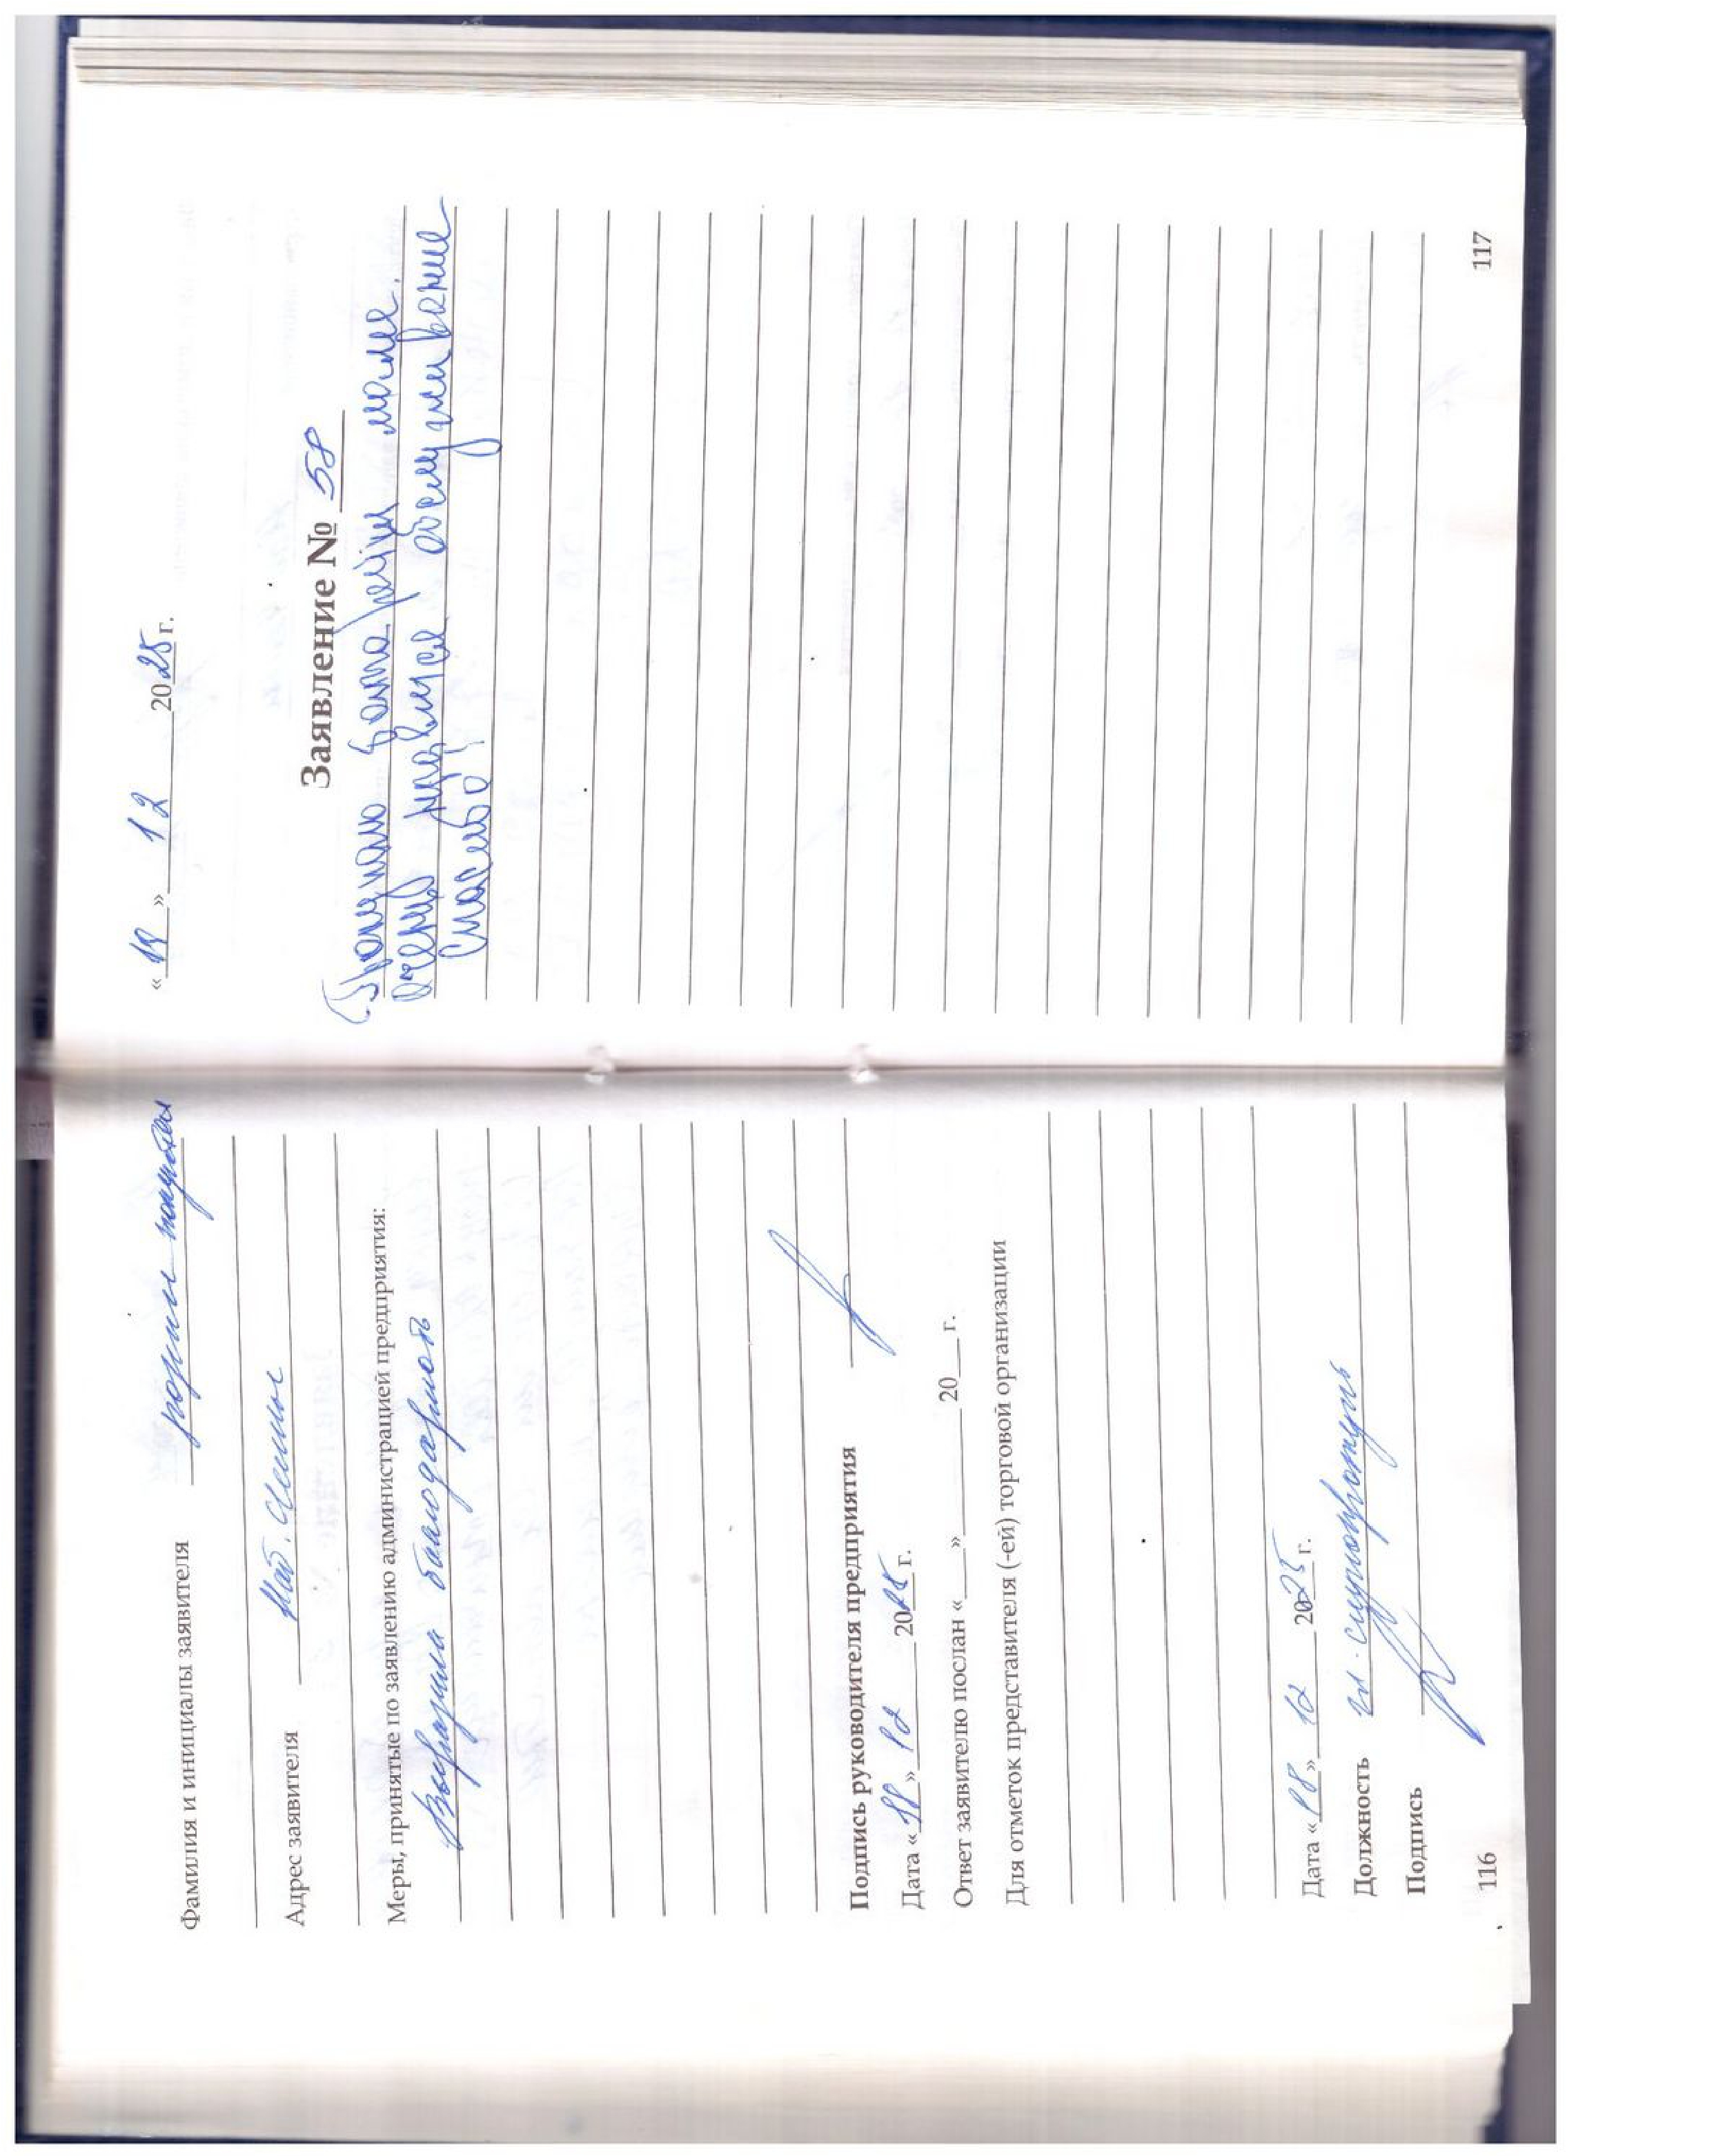 Фамилия и инициалы заявителя
Адрес заявителя Наб.
Меры, принятые по заявлению администрацией предприятия:
Выразила благодарность
Подпись руководителя предприятия
Дата «18» 12 2025 г.
Ответ заявителю послан «___»________20__г.
Для отметок представителя (-ей) торговой организации
Дата «18» 12 2025 г.
Должность
Подпись
116
«18» 12 2025 г.
Заявление № 58
Большая благодарность
Очень нравится обслуживание
Спасибо!
117